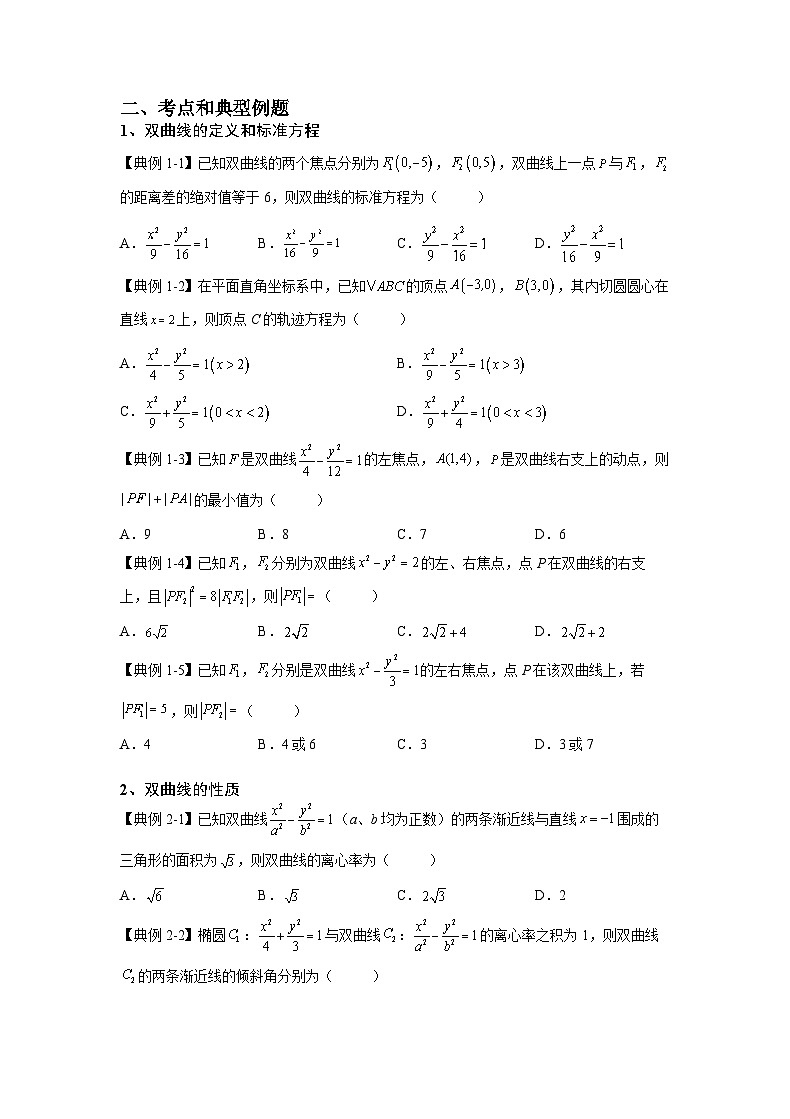 二、考点和典型例题
1、双曲线的定义和标准方程
【典例 1-1】已知双曲线的两个焦点分别为 F₁(0,−5)，F₂(0,5)，双曲线上一点 P 与 F₁，F₂
的距离差的绝对值等于 6，则双曲线的标准方程为（　　）
A．x²/9 − y²/16 = 1　B．x²/16 − y²/9 = 1　C．y²/9 − x²/16 = 1　D．y²/16 − x²/9 = 1
【典例 1-2】在平面直角坐标系中，已知V ABC 的顶点 A(−3,0)，B(3,0)，其内切圆圆心在
直线 x = 2 上，则顶点 C 的轨迹方程为（　　）
A．x²/4 − y²/5 = 1(x > 2)　B．x²/9 − y²/5 = 1(x > 3)
C．x²/9 + y²/5 = 1(0 < x < 2)　D．x²/9 + y²/4 = 1(0 < x < 3)
【典例 1-3】已知 F 是双曲线 x²/4 − y²/12 = 1 的左焦点，A(1,4)，P 是双曲线右支上的动点，则
|PF|+|PA| 的最小值为（　　）
A．9　B．8　C．7　D．6
【典例 1-4】已知 F₁，F₂ 分别为双曲线 x² − y² = 2 的左、右焦点，点 P 在双曲线的右支
上，且 |PF₂|² = 8|F₁F₂|，则 |PF₁| =（　　）
A．6√2　B．2√2　C．2√2 + 4　D．2√2 + 2
【典例 1-5】已知 F₁，F₂ 分别是双曲线 x² − y²/3 = 1 的左右焦点，点 P 在该双曲线上，若
|PF₁| = 5，则 |PF₂| =（　　）
A．4　B．4 或 6　C．3　D．3 或 7
2、双曲线的性质
【典例 2-1】已知双曲线 x²/a² − y²/b² = 1（a、b 均为正数）的两条渐近线与直线 x = −1 围成的
三角形的面积为 √3，则双曲线的离心率为（　　）
A．√6　B．√3　C．2√3　D．2
【典例 2-2】椭圆 C₁：x²/4 + y²/3 = 1 与双曲线 C₂：x²/a² − y²/b² = 1 的离心率之积为 1，则双曲线
C₂ 的两条渐近线的倾斜角分别为（　　）